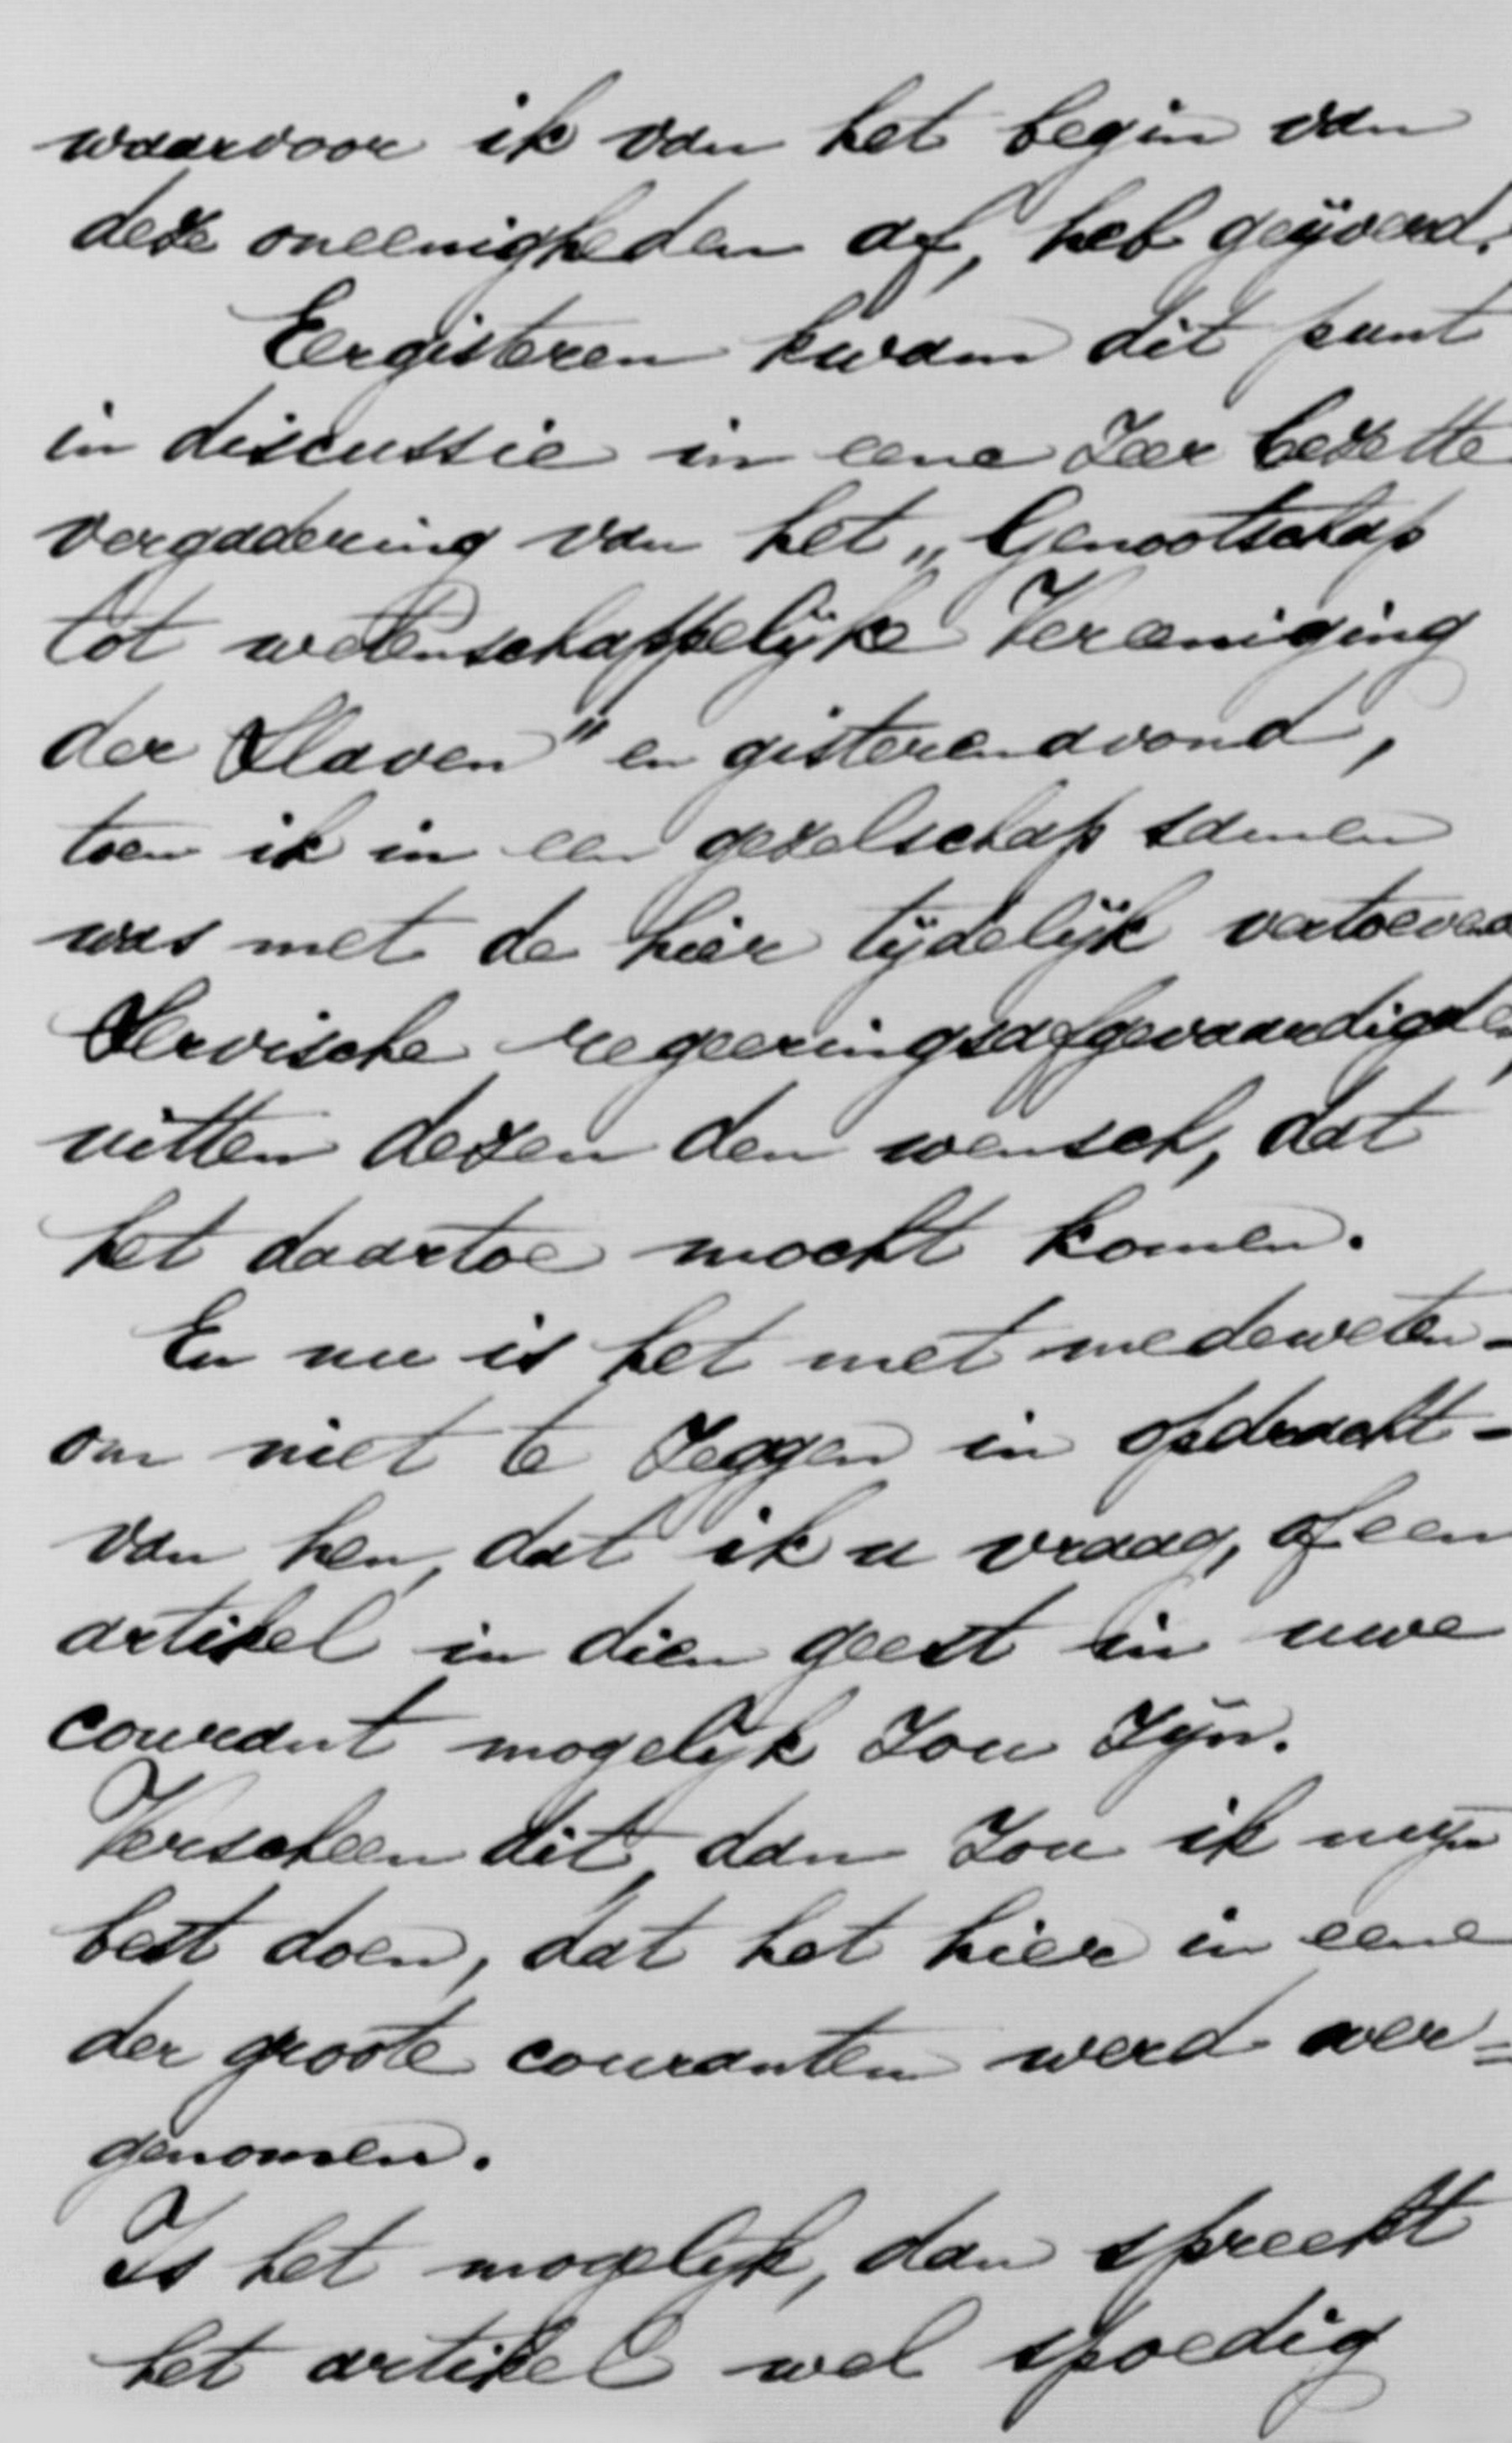 waarvoor ik van het begin van
deze oneenigheden af, heb geijverd.
Eergisteren kwam dit punt
in discussie in eene zeer bezette
vergadering van het „Genootschap
tot wetenschappelijke Vereeniging
der Slaven" en gisterenavond,
toen ik in een gezelschap samen
was met de hier tijdelijk vertoevend
Servische regeeringsafgevaardigde,
uitten dezen den wensch, dat
het daartoe mocht komen.
En nu is het met medeweten -
om niet te zeggen in opdracht -
van hen, dat ik u vraag, of een
artikel in dien geest in uwe
courant mogelijk zou zijn.
Verscheen dit, dan zou ik mijn
best doen, dat het hier in eene
der groote couranten werd over=
genomen.
Is het mogelijk, dan spreekt
het artikel wel spoedig